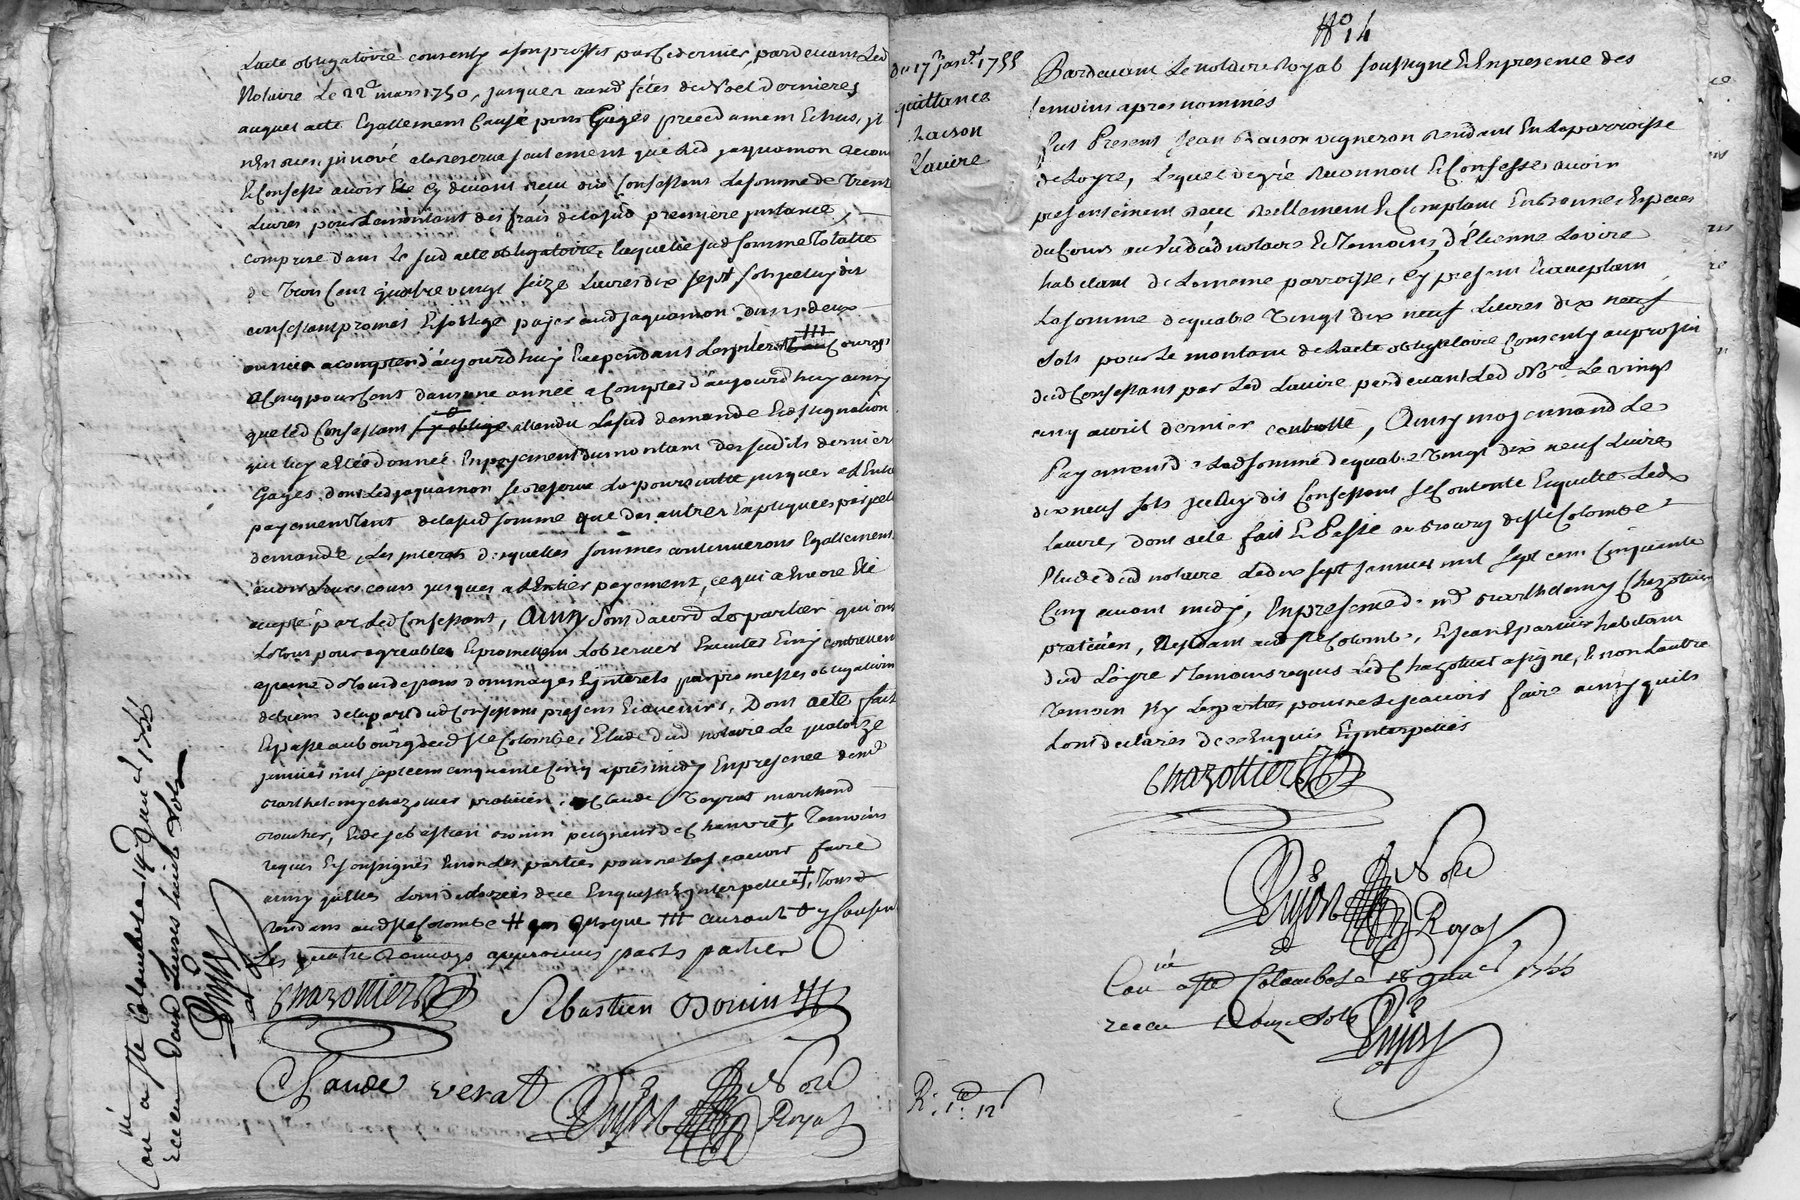 Lacte obligatoire consenty a son proffit par ce dernier, pardevant Led
Notaire Le 22e mars 1750, jusques aux fétes de Noel dernieres
auquel acte Egallement Causé pour Gages precedament Echus, jl
n'En rien jnnové a la reserve seulement que Led jaquamon
Et Confesse avoir Eté cy devant receu dud Confessant La somme de Trent
Livres pour Le montant des frais de lasud premiere jnstance,
comprise dans Le sud acte obligatoire, laquelle sud somme Totalle
de Trois Cent quatre vingt seize Livres dix sept sols jceluy dit
confessant promet Et s'oblige payer aud jaquamon dans deux
années a compter d'aujourd'huy Et cependant Les jnterets au Cour
a Cinq pour Cent dans une année a Compter d'aujourd'huy ainsy
que led Confessant s'y oblige attendu La sud demande Et assignation
qui luy a Etée donnée En payement du montant dessudits dernier
Gages dont Led jaquamon se reserve La poursuitte jusques a L'Entie
payement tant de la sud somme que des autres Expliquées par jcell
demande, Les jnterets desquelles sommes continueront Egallement
avoir Leurs cours jusques a L'Entier payement, ce qui a Encore Eté
accepté par Led Confessant, Ainsy sont d'acord Les parties qui ont
Letout pour agreable Et promettent L'observer Executer Et n'y contreven
a peine de tous depens dommages Et jnterets par promesses obligatoire
de biens de la part dud Confessant presens Et avenirs, Dont acte fait
Et passé au bourg dud Ste Colombe, Etude dud notaire Le quatorze
janvier mil sept cent cinquante Cinq apres midy En presence de me
Barthelemy chazottier praticien, Claude Veyrat marchand
Boucher, Et de sebastien Bonin peigneur de Chanvre, Temoins
requis Et soussignés Et non Les parties pour ne Le scavoir faire
ainsy qu'elles L'ont declarées de ce Enquises Et jnterpellées, Tous
residans aud Ste Colombe
Les quatre Renvoys approuvés par Les parties
Chazottier Sebastien Bonin
Claude verat Dujast Nore
Royal
Con. a Ste Colombe Le 14e janvier 1755
Receu Douze Livres huit sols
Dujast
No 14
du 17e janv. 1755
quittance
Raison
Lavire
Pardevant Le notaire Royal soussigné Et En presence des
temoins apres nommés
fut Present Jean Raison vigneron residant En La parroisse
de Loyre, Lequel de gré reconnoit Et Confesse avoir
presentement receu reellement Et Comptant En bonnes Especes
du Cours au vu dud notaire Et Temoins, d'Etienne Lavire
habitant de La meme parroisse, cy present Et acceptant
La somme de quatre Vingt dix neuf Livres dix neuf
sols pour Le montant de Lacte obligatoire Consenty au profit
dud Confessant par Led Lavire pardevant Led Nore Le vingt
cinq avril dernier controllé, Ainsy moyennant Le
Payement de Lad somme de quatre Vingt dix neuf Livres
dix neuf sols jceluy dit Confessant se Contente Et quitte Led
Lavire, dont acte fait Et Passé au Bourg de Ste Colombe
Etude dud notaire Le dix sept janvier mil sept cent Cinquante
Cinq avant midy, En presence de me Barthelemy Chazottier
praticien, Residant aud Ste Colombe, Et jean Epartier habitant
dud Loyre Temoins requis Led Chazottier a signé, Et non L'autre
Temoin ny Les parties pour ne Le scavoir faire ainsy qu'ils
L'ont declarés de ce Enquis Et jnterpellés
Chazottier
Dujast Nore
Royal
Con. a Ste Colombe Le 18e janvier 1755
receu Douze sols
Dujast